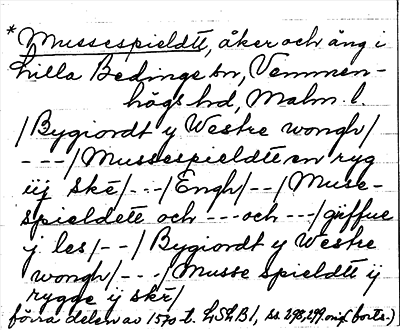 * Mussespieldtt, åker och äng i
Lilla Bedinge sn, Vemmen-
högs hd, Malm. l.
/Bygiordt y Westre wongh/
- - - /Mussespieldtt en ryg
iij ske/ - - - /Engh/ - - /Muse-
spieldett och - - - och - - -/giffue
j les/ - - /Bygiordt y Westre
wongh/ - - - /Musse spieldtt ij
rygge ij ske/
förra delen av 1570 t. LSkB1, ss. 298, 299